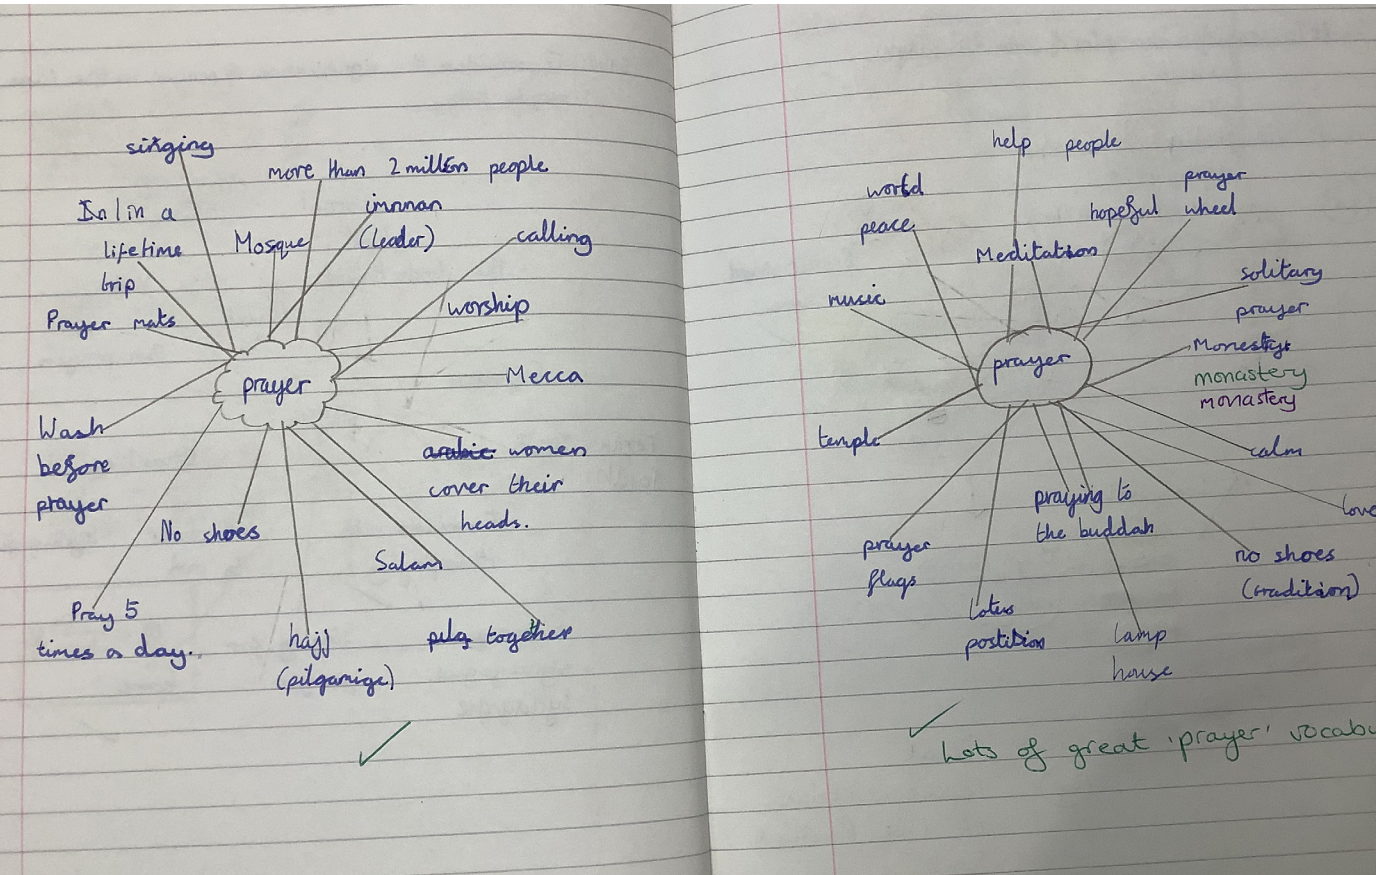 singing
more than 2 million people
In 1 in a
lifetime
trip
Mosque
immam
(leader)
calling
Prayer mats
worship
prayer
Mecca
Wash
before
prayer
arabic women
cover their
heads.
No shoes
Salam
Pray 5
times a day.
hajj
(pilgamige)
pilg together
help people
world
peace
prayer
wheel
hopeful
Meditation
music
solitary
prayer
prayer
monastery
monastery
temple
calm
love
praying to
the buddah
prayer
flags
no shoes
(tradition)
lotus
postition
lamp
house
Lots of great 'prayer' vocabu